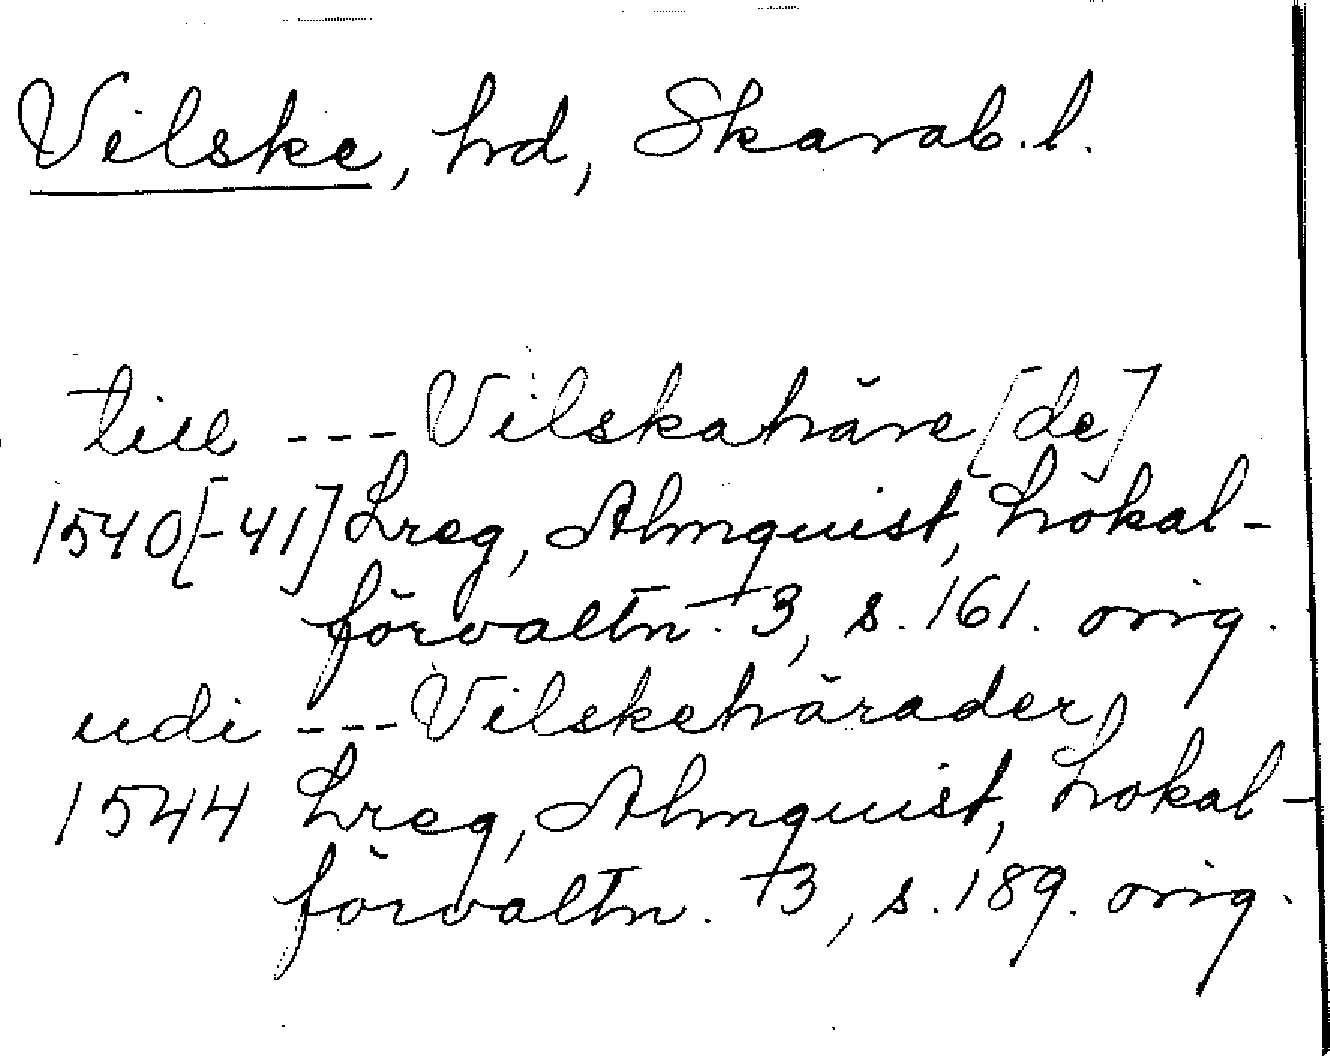 Vilske, hd, Skarab. l.
till --- Vilskahäre[de]
1540[-41] Lreg, Almquist, Lokal-
förvaltn. 3, s. 161. orig.
udi --- Vilskehärader
1544 Lreg, Almquist, Lokal-
förvaltn. 3, s. 189. orig.